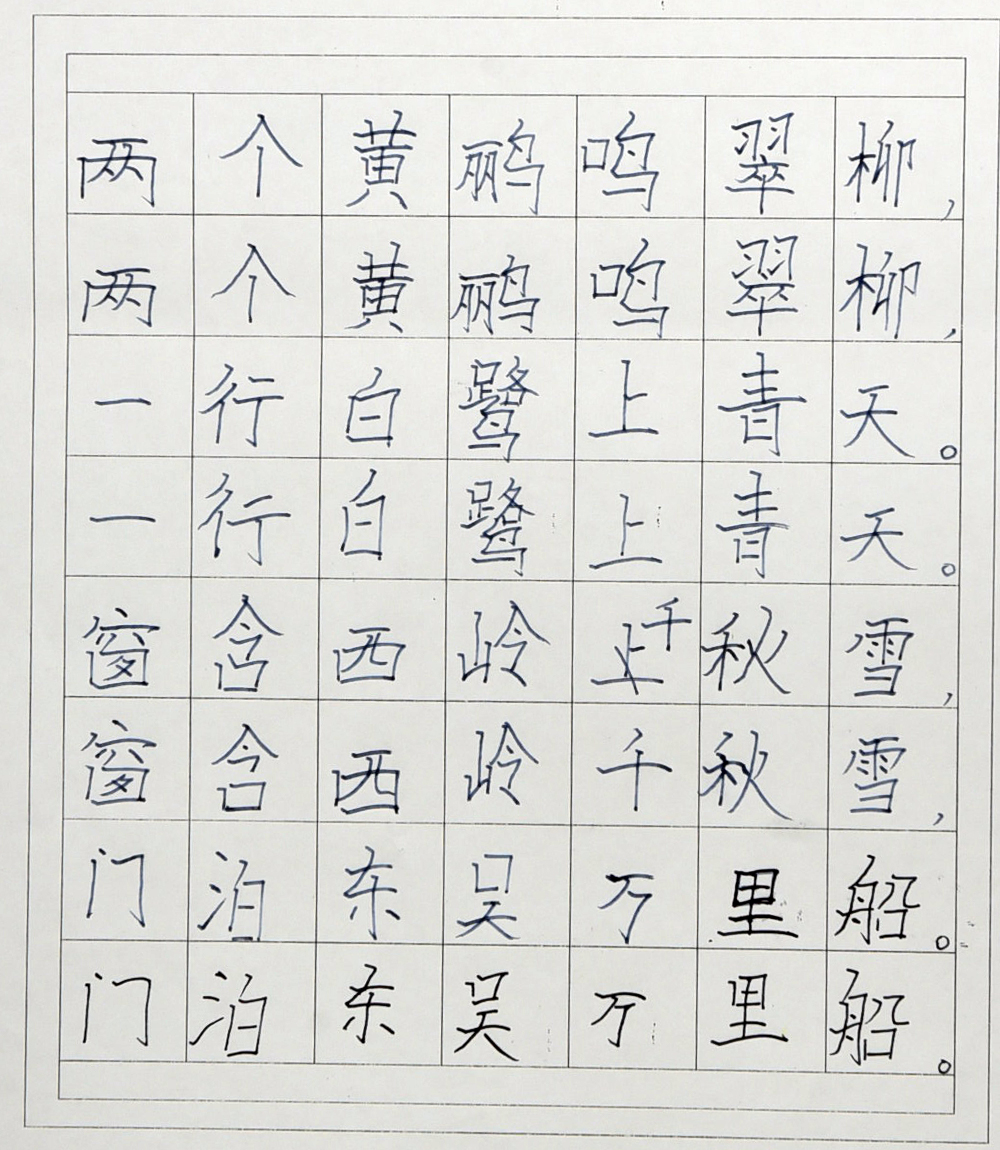 两个黄鹂鸣翠柳，
两个黄鹂鸣翠柳，
一行白鹭上青天。
一行白鹭上青天。
窗含西岭千秋雪，
窗含西岭千秋雪，
门泊东吴万里船。
门泊东吴万里船。